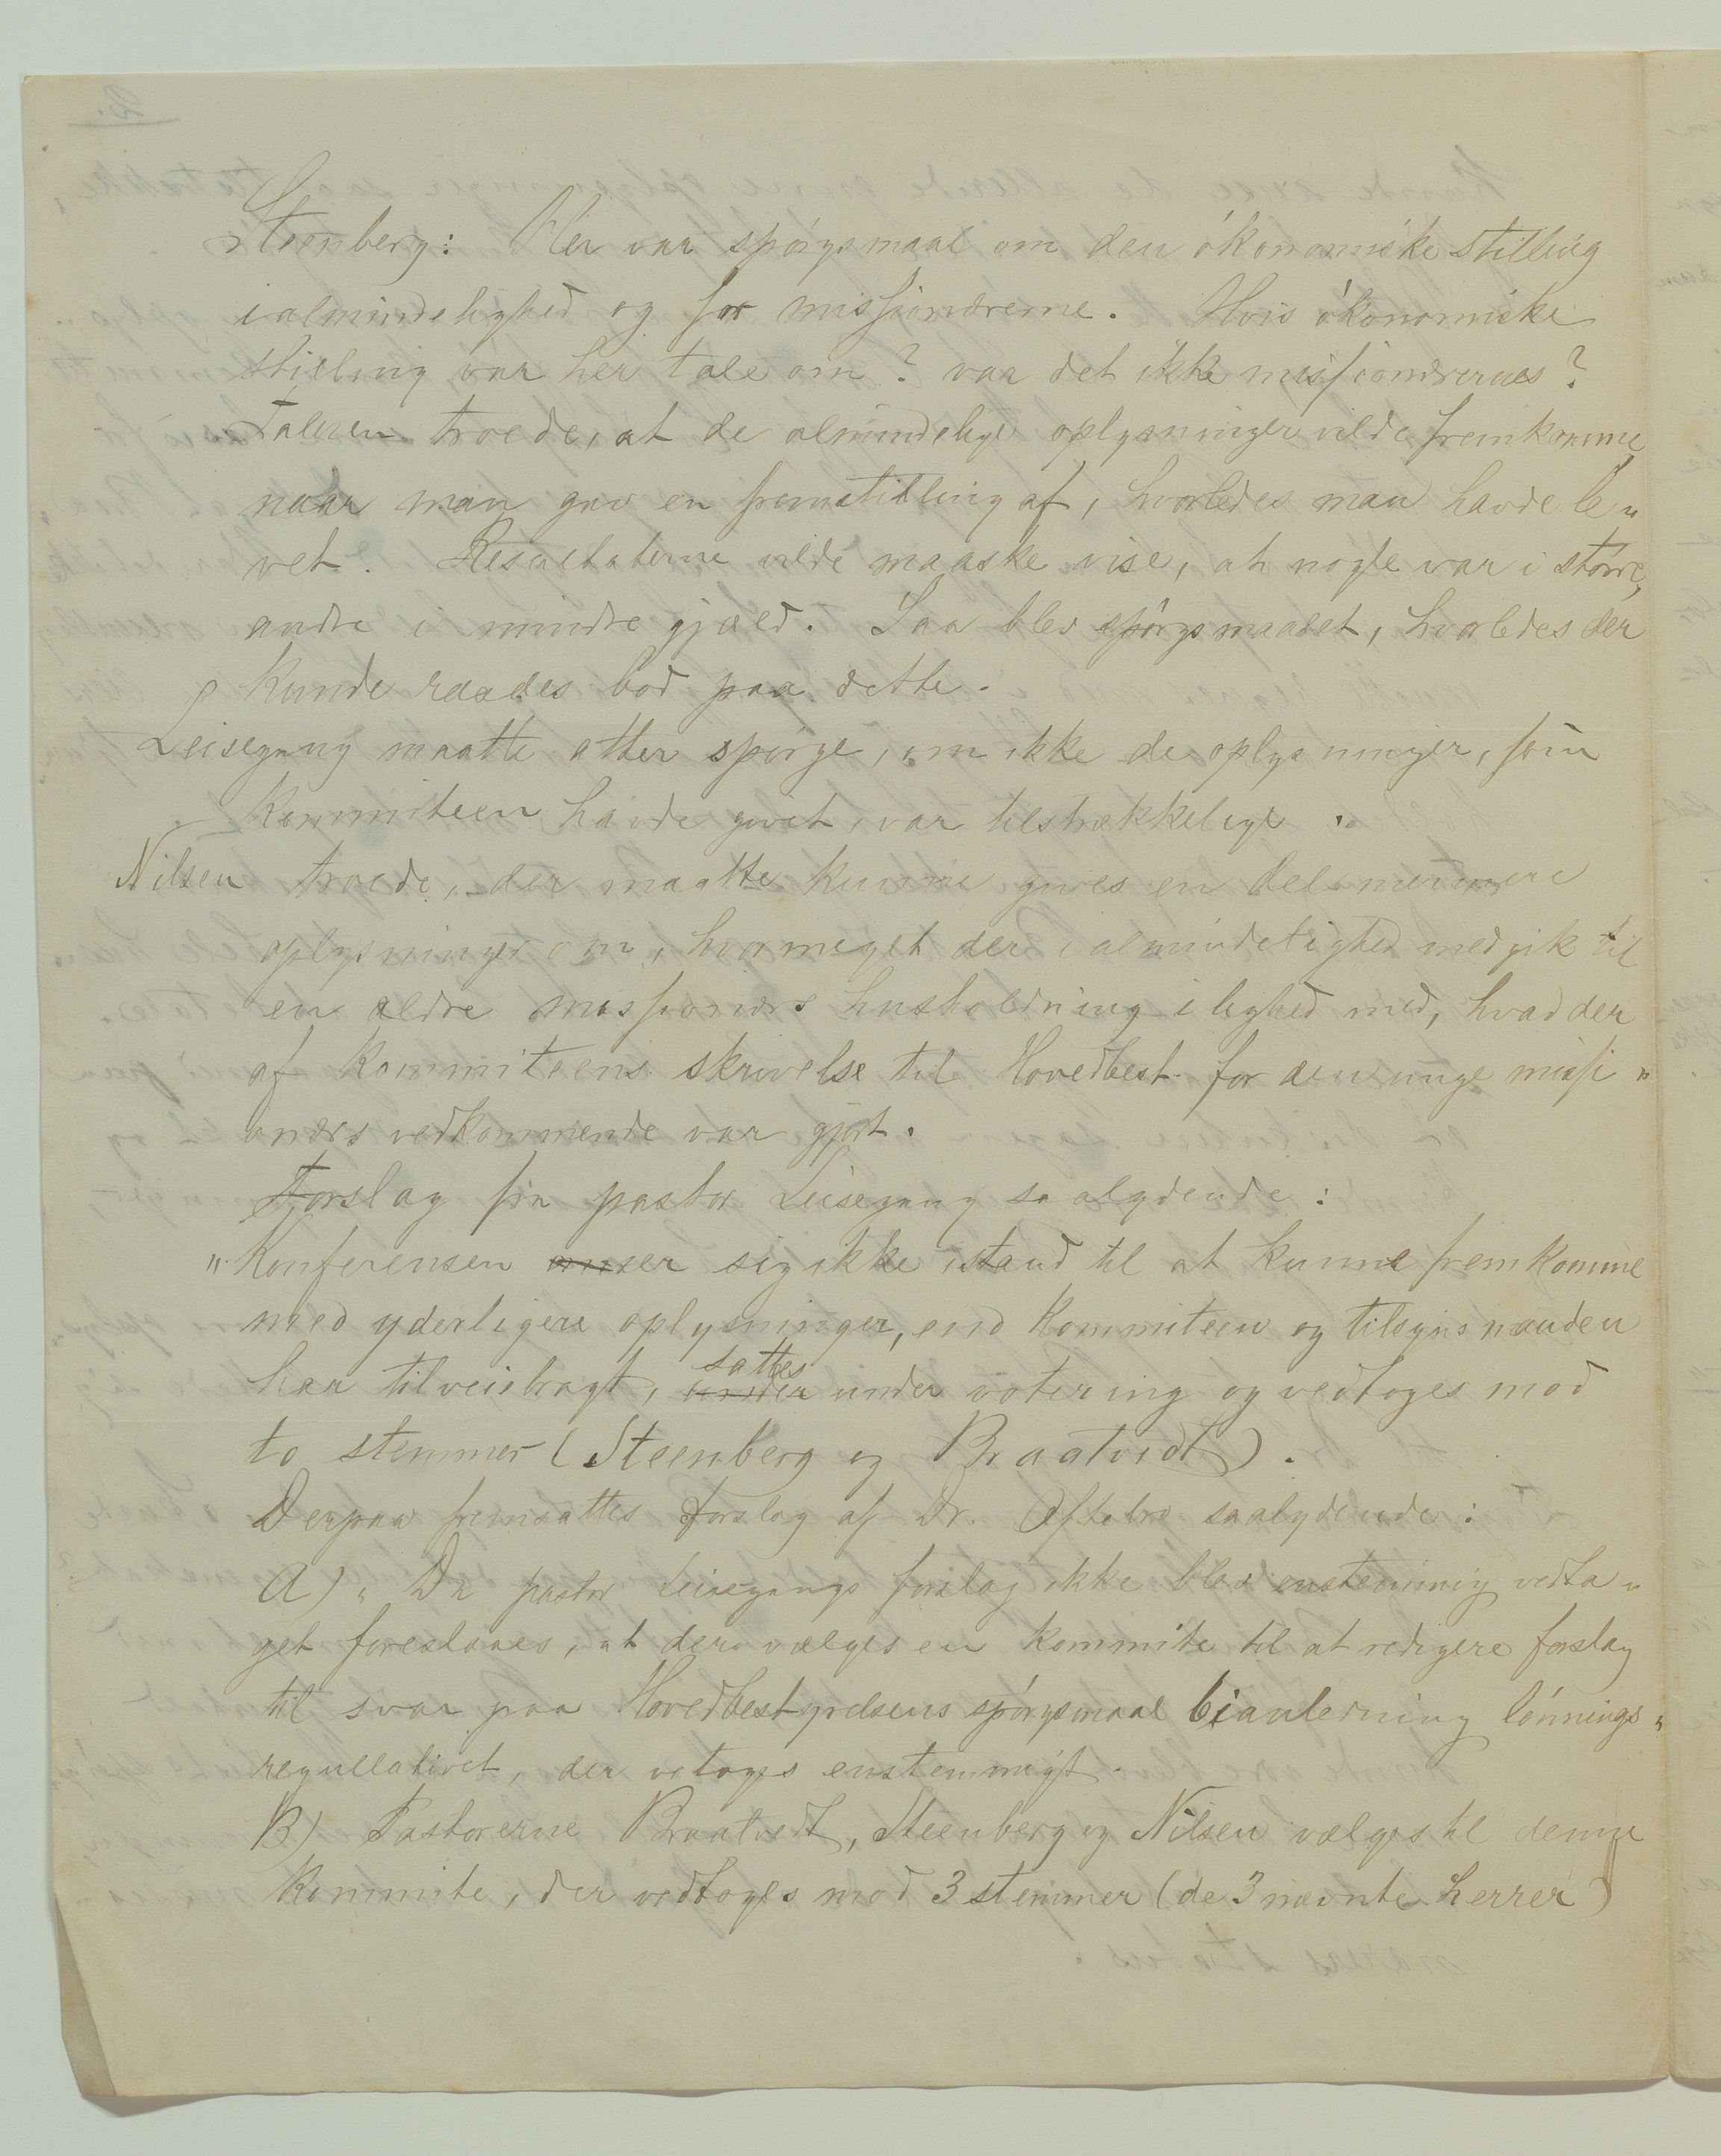 Steenberg: Her var spørgsmaal om den økonomiske stilling
ialmindelighed og for missionærerne. Hvis økonomiske
stilling var her tale om? var det ikke missionærernes?
Taleren troede, at de almindelige oplysninger vilde fremkomme,
naar man gav en fremstilling af, hvorledes man havde le„
vet. Resultaterne vilde maaske vise, at nogle var i større,
andre i mindre gjæld. Saa blev spørgsmaalet, hvorledes der
kunde raades bod paa dette.
Leisegang maatte atter spørge, om ikke de oplysninger, som
kommiteen havde givet, var tilstrækkelige.
Nilsen troede, der maatte kunne gives en del nærmere
oplysninger om, hvormeget der i almindelighed medgik til
en ældre missionærs husholdning i lighed med, hvad der
af kommiteens skrivelse til Hovedbest. for den unge missi„
onærs vedkommende var gjort.
Forslag fra pastor Leisegang saalydende:
„Konferensen anser sig ikke istand til at kunne fremkomme
med yderligere oplysninger, end kommiteen og tilsynsmanden
har tilveiebragt, sattes
under under votering og vedtoges mod
to stemmer (Steenberg og Braatvedt).
Derpaa fremsattes forslag af Dr. Oftebro saalydende:
A) „Da pastor Leisegangs forslag ikke blev enstemmig vedta„
get foreslaaes, at der vælges en kommite til at redigere forslag
til svar paa Hovedbestyrelsens spørgsmaal bianledning lønnings„
regullativet, der vetoges enstemmigt.
B) Pastorerne Braatvedt, Steenberg og Nilsen vælges til denne
kommite, der vedtoges mod 3 stemmer (de 3 nævnte herrer)